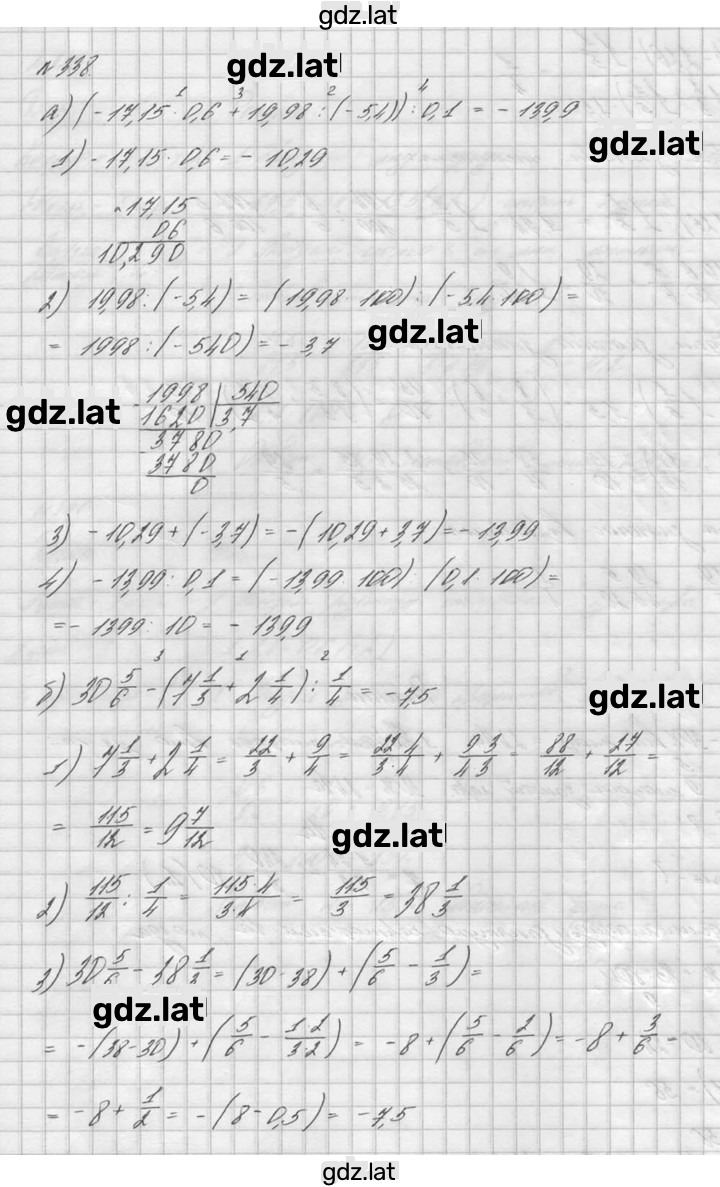 gdz.lat
№338
gdz.lat
а) (-17,15 · 0,6 + 19,98 : (-5,4)) : 0,1 = -139,9
1 3 2 4
gdz.lat
1) -17,15 · 0,6 = -10,29
17,15
0,6
10,290
2) 19,98 : (-5,4) = (19,98 · 100) : (-5,4 · 100) =
gdz.lat
= 1998 : (-540) = -3,7
gdz.lat
1998 | 540
1620 | 3,7
3780
3780
0
3) -10,29 + (-3,7) = -(10,29 + 3,7) = -13,99
4) -13,99 : 0,1 = (-13,99 · 100) : (0,1 · 100) =
= -1399 : 10 = -139,9
3 1 2
б) 30 5/6 - (7 1/3 + 2 1/4) : 1/4 = -7,5
gdz.lat
1) 7 1/3 + 2 1/4 = 22/3 + 9/4 = 22·4/3·4 + 9·3/4·3 = 88/12 + 27/12 =
= 115/12 = 9 7/12
gdz.lat
2) 115/12 : 1/4 = 115·4/3·4 = 115/3 = 38 1/3
3) 30 5/6 - 38 1/3 = (30-38) + (5/6 - 1/3) =
gdz.lat
= -(38-30) + (5/6 - 1·2/3·2) = -8 + (5/6 - 2/6) = -8 + 3/6 =
= -8 + 1/2 = -(8-0,5) = -7,5
gdz.lat